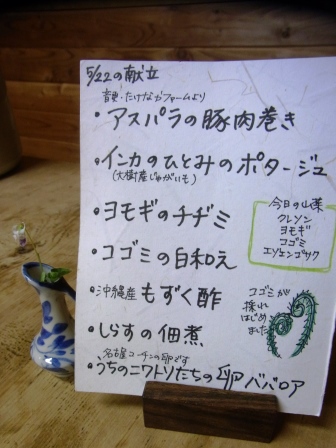 5/22の献立
音更・たけなかファームより
・アスパラの豚肉巻き
・インカのひとみのポタージュ
(大樹産じゃがいも)
・ヨモギのチヂミ
・コゴミの白和え
・沖縄産もずく酢
・しらすの佃煮
名古屋コーチンの卵です
・うちのニワトリたちの卵ババロア
今日の山菜
クレソン
ヨモギ
コゴミ
エゾエンゴサク
コゴミが
採れ
はじめ
ました